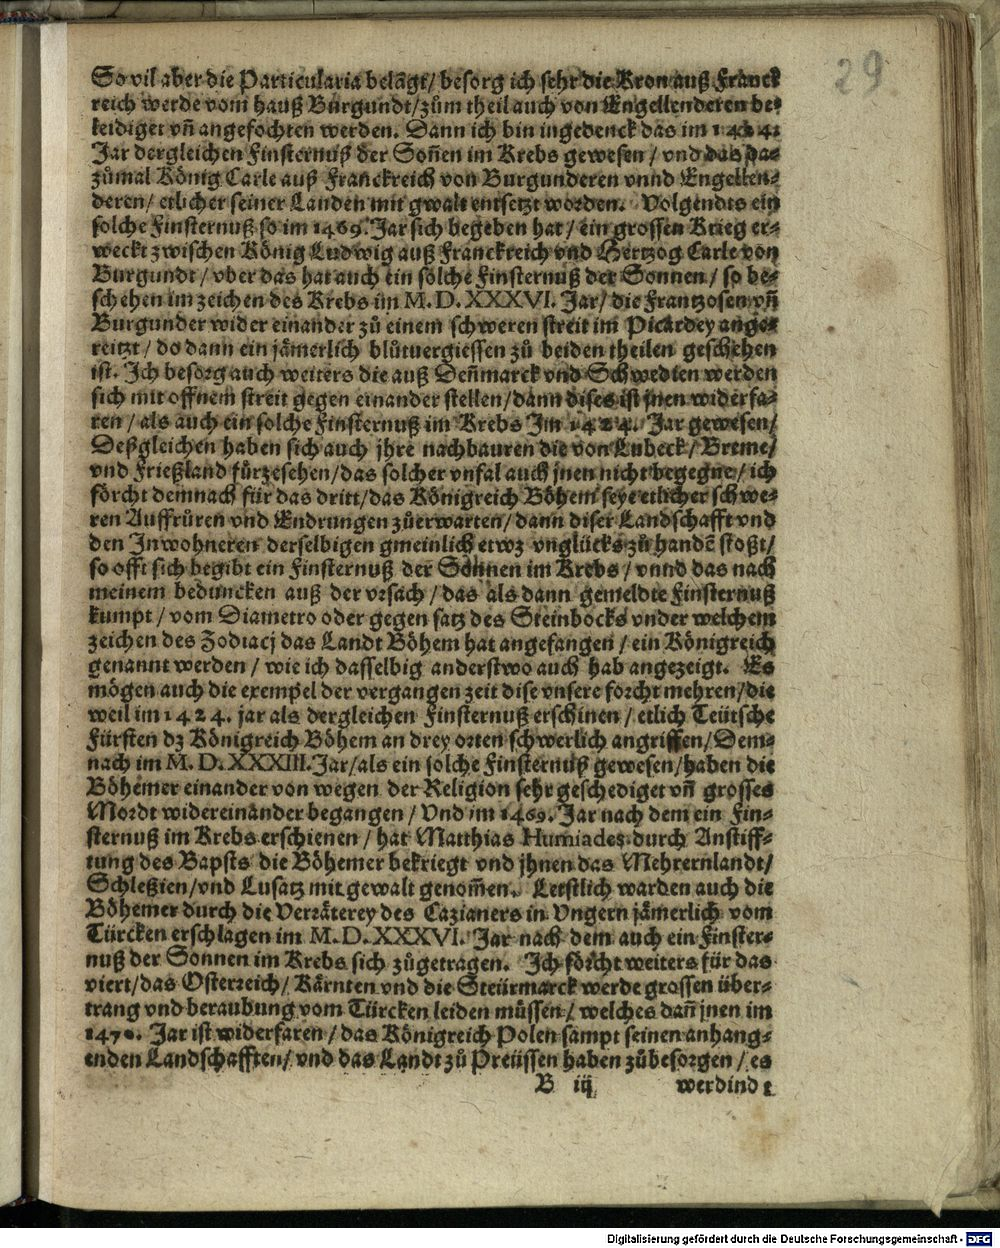 29
So vil aber die Particularia belãgt/ besorg ich sehr die Kron auß Franck
reich werde vom hauß Burgundt/ zům theil auch von Engellenderen be-
leidiget vñ angefochten werden. Dann ich bin ingedenck das im 1424.
Jar dergleichen Finsternuß der Soñen im Krebs gewesen/ vnd das da-
zůmal König Carle auß Franckreich von Burgunderen vnnd Engellen-
deren/ etlicher seiner Landen mit gwalt entsetzt worden. Volgendts ein
solche Finsternuß so im 1469. Jar sich begeben hat/ ein grossen Krieg er-
weckt zwischen König Ludwig auß Franckreich vnd Hertzog Carle von
Burgundt/ vber das hat auch ein solche Finsternuß der Sonnen/ so be-
schehen im zeichen des Krebs im M. D. XXXVI. Jar/ die Frantzosen vñ
Burgunder wider einander zů einem schweren streit im Picardey ange-
reitzt/ do dann ein jämerlich blůtuergiessen zů beiden theilen geschehen
ist. Ich besorg auch weiters die auß Deñmarck vnd Schwedien werden
sich mit offnem streit gegen einander stellen/ dann dises ist jnen widerfa-
ren/ als auch ein solche Finsternuß im Krebs Im 1424. Jar gewesen/
Deßgleichen haben sich auch jhre nachbauren die von Lubeck/ Breme/
vnd Frießland fürzesehen/ das solcher vnfal auch jnen nicht begegne/ ich
förcht demnach für das dritt/ das Königreich Böhem seye etlicher schwe-
ren Auffrůren vnd Endrungen zůerwarten/ dann diser Landschafft vnd
den Inwohneren derselbigen gmeinlich etwz vnglücks zů handẽ stoßt/
so offt sich begibt ein Finsternuß der Sonnen im Krebs/ vnnd das nach
meinem beduncken auß der vrsach/ das als dann gemeldte Finsternuß
kumpt/ vom Diametro oder gegen satz des Steinbocks vnder welchem
zeichen des Zodiacj das Landt Böhem hat angefangen/ ein Königreich
genannt werden/ wie ich dasselbig anderstwo auch hab angezeigt. Es
mögen auch die exempel der vergangen zeit dise vnsere forcht mehren/ die
weil im 1424. jar als dergleichen Finsternuß erschinen/ etlich Teütsche
Fürsten dz Königreich Böhem an drey orten schwerlich angriffen/ Dem-
nach im M. D. XXXIII. Jar/ als ein solche Finsternuß gewesen/ haben die
Böhemer einander von wegen der Religion sehr geschediget vñ grosses
Mordt widereinander begangen/ Vnd im 1469. Jar nach dem ein Fin-
sternuß im Krebs erschienen/ hat Matthias Humiades durch Anstiff-
tung des Bapsts die Böhemer bekriegt vnd jhnen das Mehrernlandt/
Schleßien/ vnd Lusatz mit gewalt genom̃en. Letstlich warden auch die
Böhemer durch die Verräterey des Cazianers in Vngern jämerlich vom
Türcken erschlagen im M. D. XXXVI. Jar nach dem auch ein Finster-
nuß der Sonnen im Krebs sich zůgetragen. Ich förcht weiters für das
viert/ das Osterreich/ Kärnten vnd die Steürmarck werde grossen über-
trang vnd beraubung vom Türcken leiden müssen/ welches dañ jnen im
1470. Jar ist widerfaren/ das Königreich Polen sampt seinen anhang-
enden Landschafften/ vnd das Landt zů Preüssen haben zůbesorgen/ es
B iij werdind
Digitalisierung gefördert durch die Deutsche Forschungsgemeinschaft - DFG